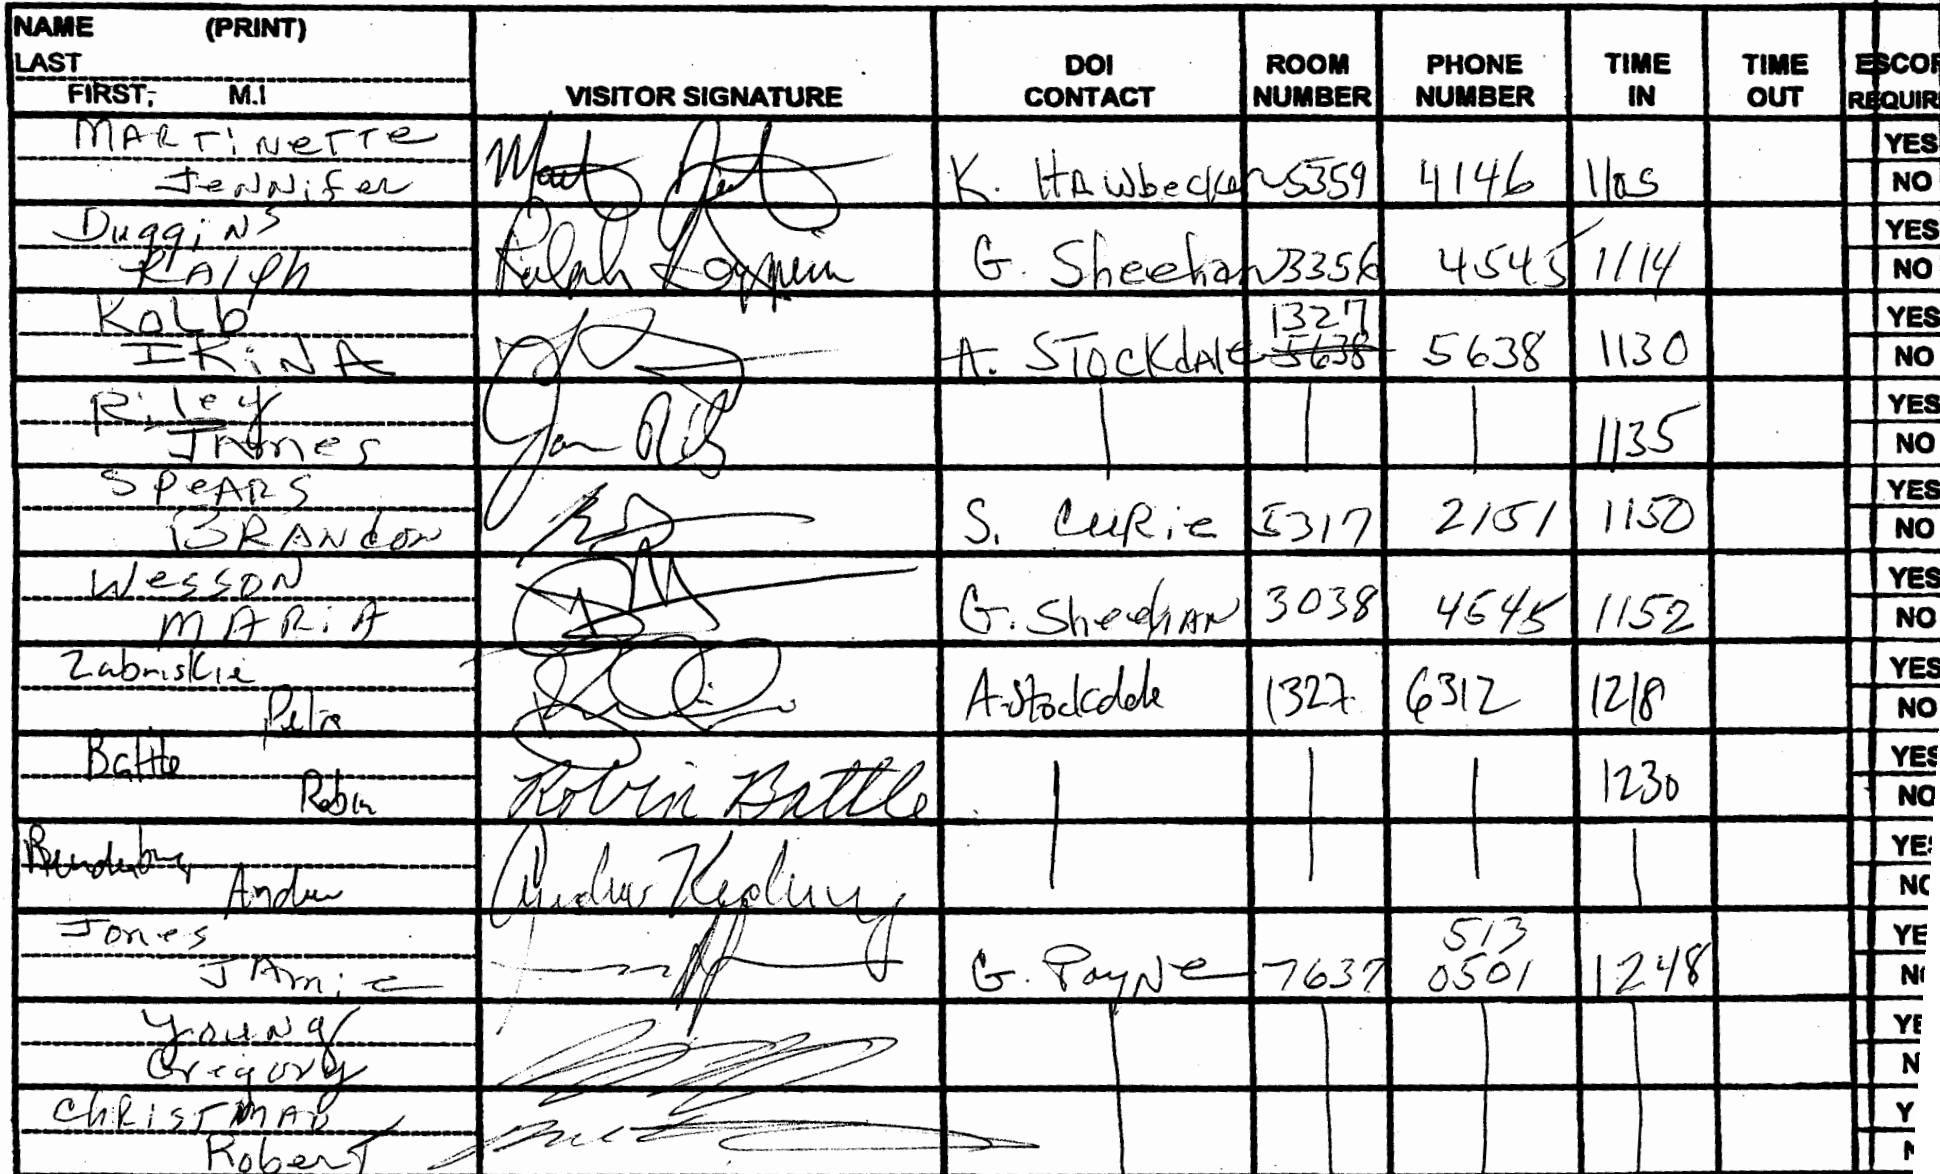 NAME (PRINT)
LAST
FIRST, M.I
VISITOR SIGNATURE
DOI
CONTACT
ROOM
NUMBER
PHONE
NUMBER
TIME
IN
TIME
OUT
ESCOR
REQUIR
MARTiNeTTe
JeNNifer
K. HAwbecker 5359 4146 1105
YES
NO
DuggiNs
RAlph
Ralph Duggins
G. Sheehan 3356 4545 1114
YES
NO
KoLb
IRiNA
1327
A. STockdAle 5638 5638 1130
YES
NO
Riley
JAmes
1135
YES
NO
SPeARS
BRANdon
S. CuRie 5317 2151 1150
YES
NO
WessoN
MARiA
G. SheehAN 3038 4545 1152
YES
NO
Zabriskie
Petra
A. Stockdale 1327 6312 1218
YES
NO
Battle
Robin
Robin Battle
1230
YES
NO
Andrew
YES
NO
Jones
JAmie
G. PayNe 7637 513
0501 1248
YE
NO
YouNg
Gregory
YE
N
ChRiSTMAN
RoberT
Y